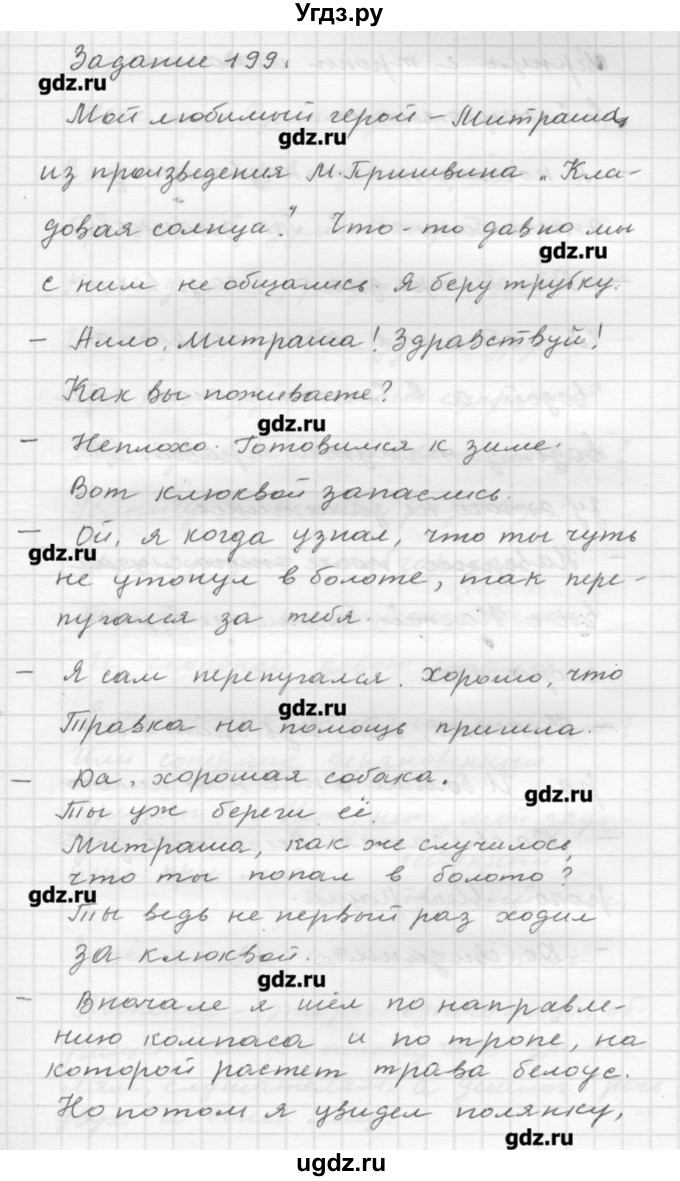 Угдз.ру
Задание 199.
gdz.ru
Мой любимый герой – Митраша,
gdz.ru
из произведения М. Пришвина „Кла-
довая солнца". Что-то давно мы
gdz.ru
с ним не общались. Я беру трубку.
– Алло, Митраша! Здравствуй!
Как вы поживаете?
gdz.ru
– Неплохо. Готовимся к зиме.
Вот клюквой запаслись.
– Ой, я когда узнал, что ты чуть
gdz.ru
не утонул в болоте, так пере-
пугался за тебя.
– Я сам перепугался. Хорошо, что
gdz.ru
Травка на помощь пришла.
– Да, хорошая собака.
gdz.ru
Ты уж береги её.
Митраша, как же случилось,
что ты попал в болото?
gdz.ru
Ты ведь не первый раз ходил
за клюквой.
gdz.ru
– Вначале я шёл по направле-
нию компаса и по тропе, на
которой растет трава белоус.
Но потом я увидел полянку,
gdz.ru
ugdz.ru